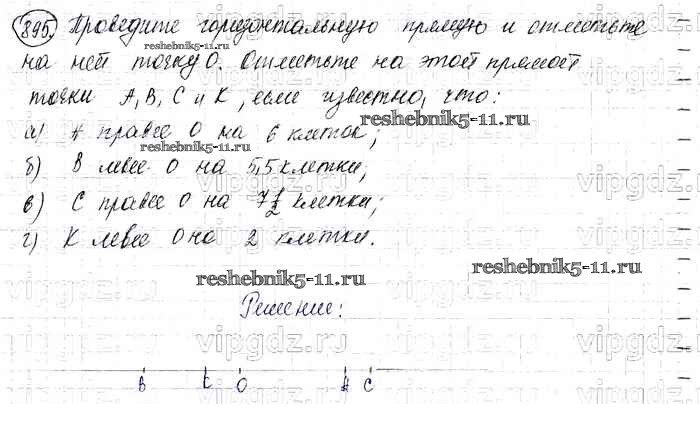 895. Проведите горизонтальную прямую и отметьте
на ней точку O. Отметьте на этой прямой
точки A, B, C и K, если известно, что:
а) A правее O на 6 клеток;
б) B левее O на 5,5 клетки;
в) C правее O на 7 1/2 клетки;
г) K левее O на 2 клетки.
Решение:
B K O A C
reshebnik5-11.ru
reshebnik5-11.ru
reshebnik5-11.ru
reshebnik5-11.ru
reshebnik5-11.ru
vipgdz.ru
vipgdz.ru
vipgdz.ru